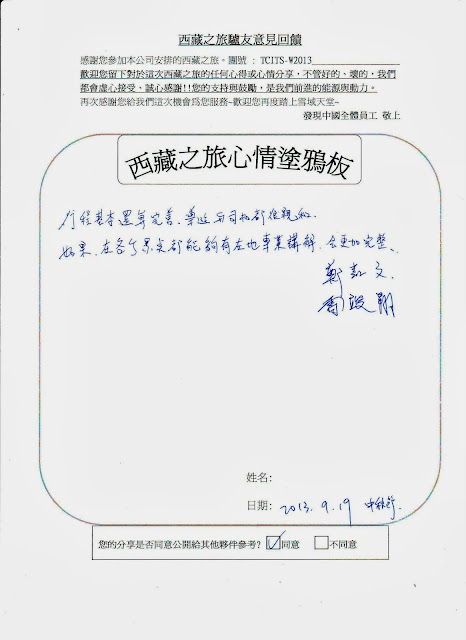 西藏之旅驢友意見回饋
感謝您參加本公司安排的西藏之旅。團號 : TCITS-W2013
歡迎您留下對於這次西藏之旅的任何心得或心情分享，不管好的、壞的，我們
都會虛心接受、誠心感謝!!您的支持與鼓勵，是我們前進的能源與動力。
再次感謝您給我們這次機會為您服務~歡迎您再度踏上雪域天堂~
發現中國全體員工 敬上
西藏之旅心情塗鴉板
行程基本還算完善、導遊與司机都很親和.
如果.在各个景點都能夠有在地專業講解.会更加完整、
鄭 文.
姓名:
日期: 2013. 9. 19 中秋節.
您的分享是否同意公開給其他夥伴參考? ☑同意 □不同意